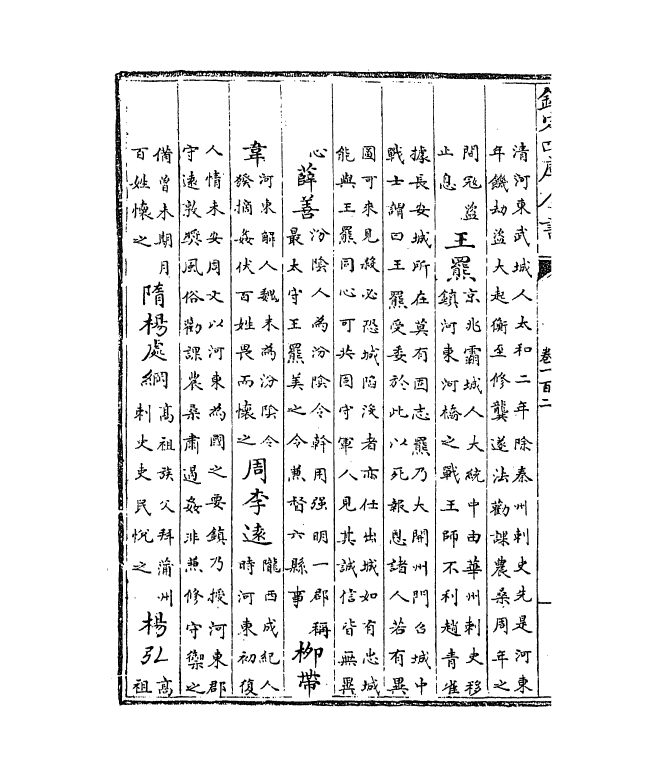 欽定四庫全書
卷一百二
清河東武城人太和二年除秦州刺史先是河東
年饑劫盜大起衡至修龔遂法勸課農桑周年之
間冦盜
止息
王羆
京兆霸城人大統中由華州刺史移
鎮河東河橋之戰王師不利趙青雀
據長安城所在莫有固志羆乃大開州門召城中
戰士謂曰王羆受委於此以死報恩諸人若有異
圖可來見殺必恐城陷沒者亦仕出城如有忠城
能與王羆同心可共固守軍人見其誠信皆無異
心
薛善
汾陰人為汾陰令幹用强明一郡稱
最太守王羆美之令兼督六縣事
柳帶
韋
河東解人魏末為汾陰令
發摘姦伏百姓畏而懷之
周李遠
隴西成紀人
時河東初復
人情未安周文以河東為國之要鎮乃授河東郡
守遠敦奬風俗勸課農桑肅遏姦非兼修守禦之
備曾未期月
百姓懷之
隋楊處綱
高祖族父拜蒲州
刺史吏民悅之
楊弘
高
祖